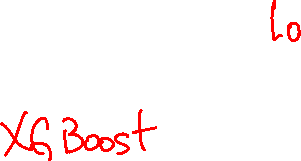 lo
XGBoost